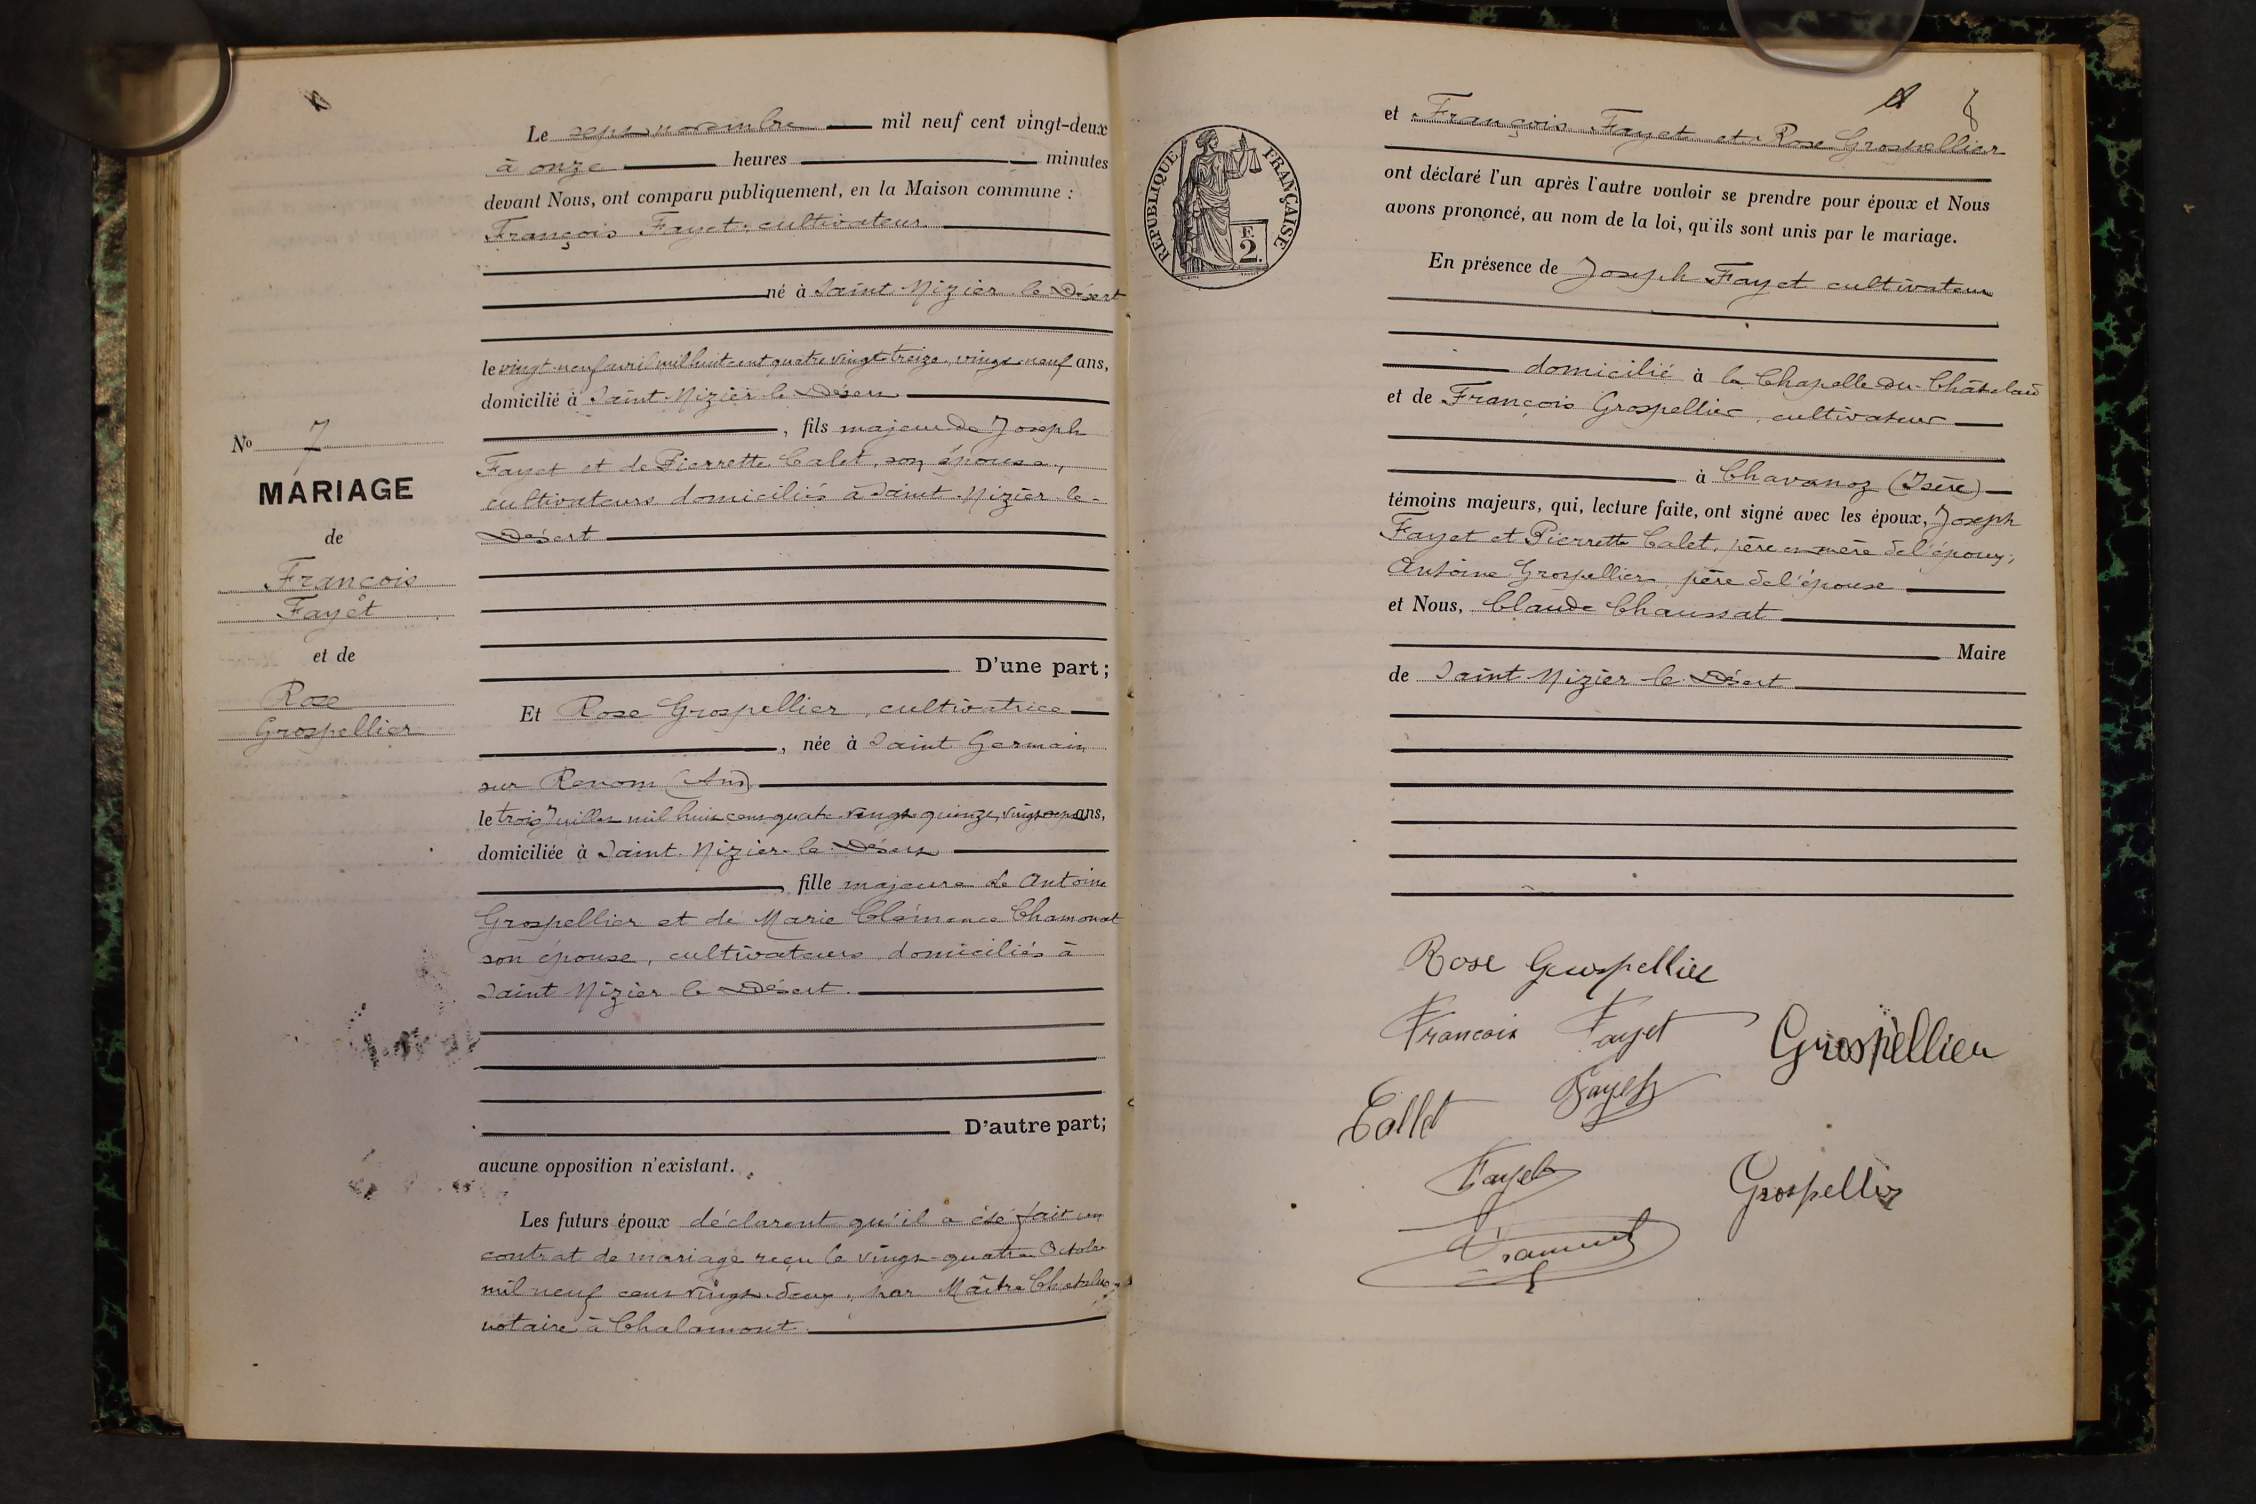 Le sept novembre mil neuf cent vingt-deux
à onze heures minutes
devant Nous, ont comparu publiquement, en la Maison commune :
François Fayet, cultivateur
né à Saint Nizier le Désert
le vingt-neuf avril mil huit cent quatre vingt treize, vingt neuf ans,
domicilié à Saint Nizier le Désert
, fils majeur de Joseph
Fayet et de Pierrette Calet, son épouse,
cultivateurs domiciliés à Saint Nizier le-
Désert
D'une part ;
Et Rose Grospellier, cultivatrice
, née à Saint Germain
sur Renom (Ain)
le trois Juillet mil huit cent quatre vingt quinze, vingt sept ans,
domiciliée à Saint Nizier le Désert
, fille majeure de Antoine
Grospellier et de Marie Clémence Chamonat
son épouse, cultivateurs, domiciliés à
Saint Nizier le Désert.
D'autre part ;
aucune opposition n'existant.
Les futurs époux déclarent qu'il a été fait un
contrat de mariage reçu le vingt-quatre Octobre
mil neuf cent vingt-deux, par Maître
notaire à Chalamont
No 7
MARIAGE
de
François
Fayet
et de
Rose
Grospellier
8
RÉPUBLIQUE FRANÇAISE
F.
2.
et François Fayet et Rose Grospellier
ont déclaré l'un après l'autre vouloir se prendre pour époux et Nous
avons prononcé, au nom de la loi, qu'ils sont unis par le mariage.
En présence de Joseph Fayet cultivateur
domicilié à la Chapelle du Châtelard
et de François Grospellier, cultivateur
à Chavanoz (Isère)
témoins majeurs, qui, lecture faite, ont signé avec les époux, Joseph
Fayet et Pierrette Calet, père et mère de l'époux ;
Antoine Grospellier père de l'épouse
et Nous, Claude Chaussat
Maire
de Saint Nizier le Désert
Rose Grospellier
François Fayet
Grospellier
Fayet
Callet
Fayet
Grospellier